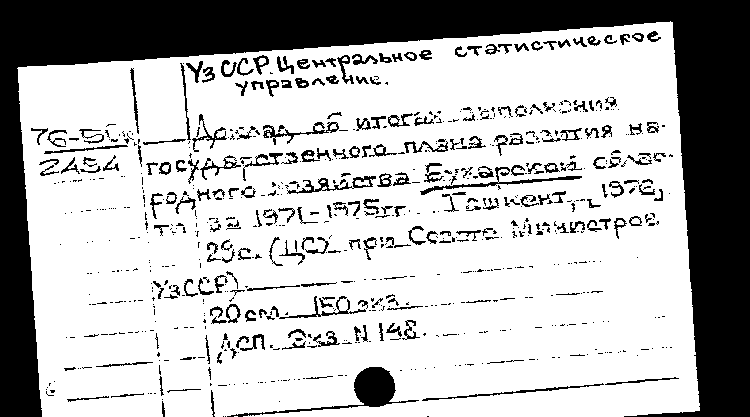 УзССР. Центральное статистическое
управление.
Доклад об итогах выполнения
76-5
2454 государственного плана развития на-
родного хозяйства Бухарской облас-
ти за 1971-1975гг. Ташкент, 1976,
29с. (ЦСУ при Совете Министров
УзССР).
20см. 150экз.
ДСП. Экз N 148.